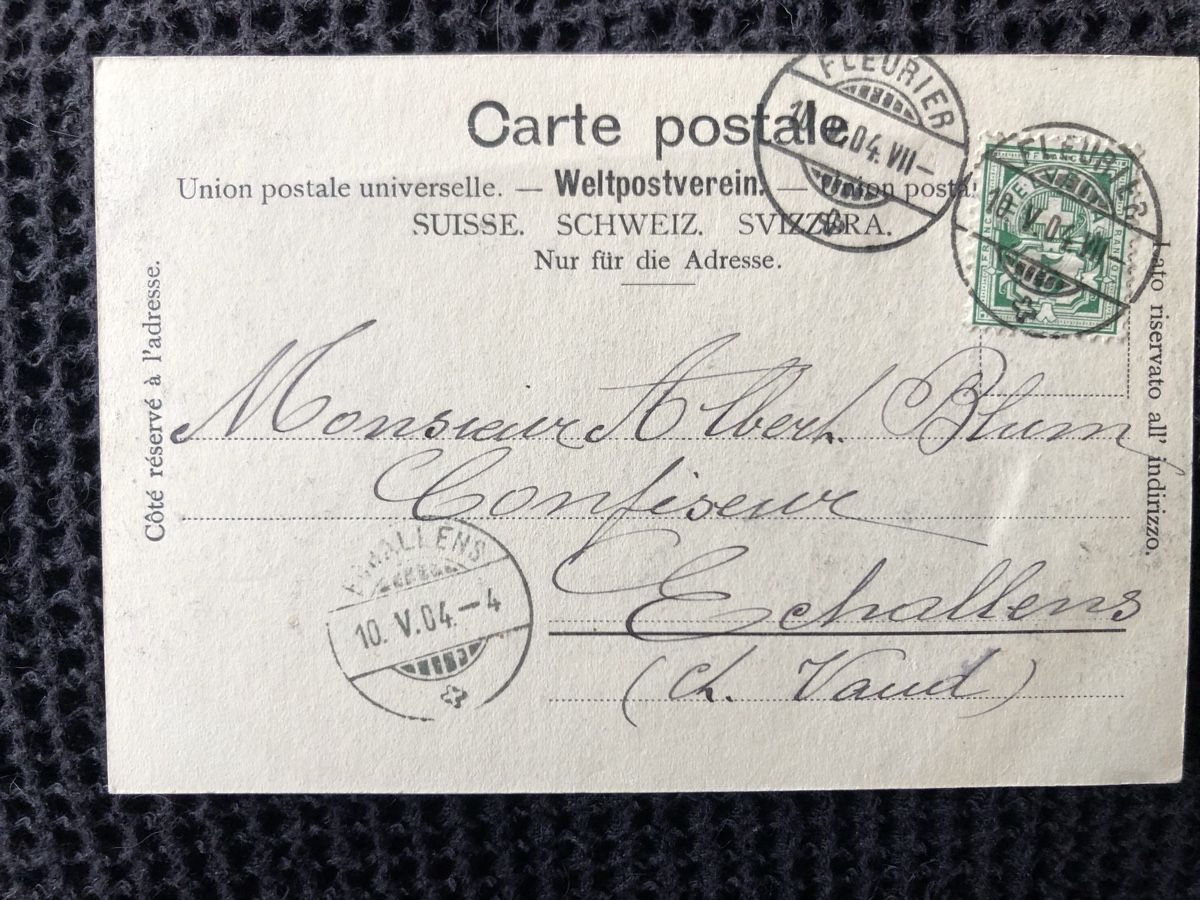 Carte postale.
Union postale universelle. — Weltpostverein. — Union posta
SUISSE. SCHWEIZ. SVIZZERA.
Nur für die Adresse.
FLEURIER
10. V. 04. VII—
FLEURIER
10. V. 04. VII—
FRANCO
Côté réservé à l'adresse.
Lato riservato all' indirizzo.
Monsieur Albert Blum
Confiseur
Echallens
(Ct. Vaud)
ECHALLENS
10. V. 04.—4